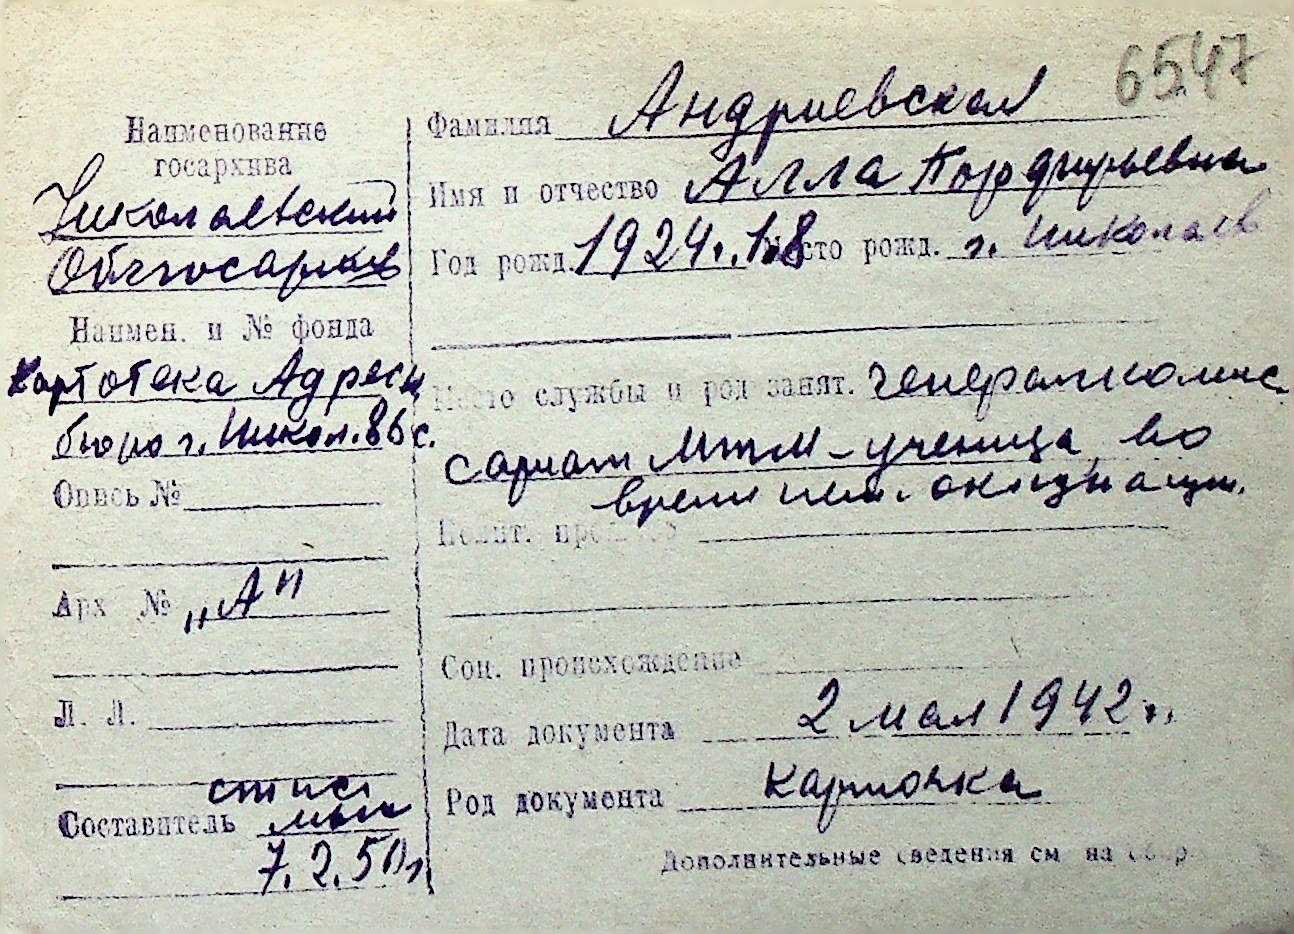 6547
Наименование
госархива
Николаевский
Облгосархив
Наимен. и № фонда
Картотека Адресн
бюро г. Никол. 86 с.
Опись №
Арх №  „А"
Л. Л.
Составитель
7.2.50 г
Фамилия Андриевская
Имя и отчество Алла Порфирьевна
Год рожд. 1924 г. 1.8 Место рожд. г. Николаев
Место службы и род занят. генералкомис
сариат МТМ – ученица во
время нем. оккупации.
Полит. прошлое
Соц. происхождение
Дата документа 2 мая 1942 г.
Род документа карточка
Дополнительные сведения см на обор